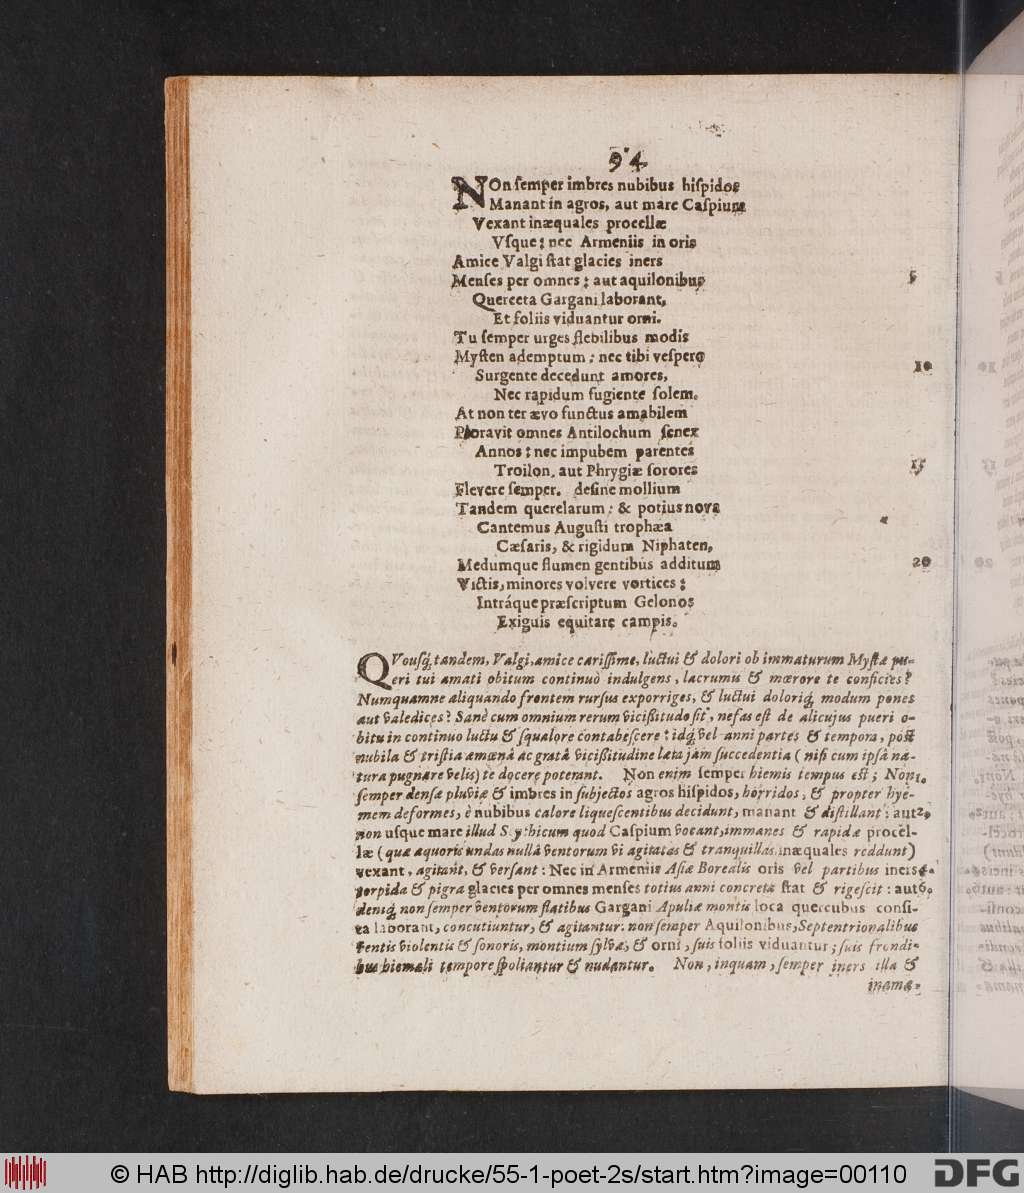 94
NOn ſemper imbres nubibus hiſpidos
Manant in agros, aut mare Caſpium
Vexant inæquales procellæ
Vſque; nec Armeniis in oris
Amice Valgi ſtat glacies iners
Menſes per omnes; aut aquilonibus 5
Querceta Gargani laborant,
Et foliis viduantur orni.
Tu ſemper urges flebilibus modis
Myſten ademptum; nec tibi veſpero
Surgente decedunt amores, 10
Nec rapidum fugiente ſolem.
At non ter ævo functus amabilem
Ploravit omnes Antilochum ſenex
Annos; nec impubem parentes
Troilon, aut Phrygiæ ſorores 15
Flevere ſemper. deſine mollium
Tandem querelarum; & potius nova
Cantemus Auguſti trophæa
Cæſaris, & rigidum Niphaten,
Medumque flumen gentibus additum 20
Victis, minores volvere vortices;
Intráque præſcriptum Gelonos
Exiguis equitare campis.
QVouſq́; tandem, Valgi, amice cariſſime, luctui & dolori ob immaturum Myſtæ pu-
eri tui amati obitum continuò indulgens, lacrumis & mœrore te conficies?
Numquamne aliquando frontem rurſus exporriges, & luctui doloriq́; modum pones
aut valedices? Sanè cum omnium rerum viciſſitudo ſit, nefas eſt de alicujus pueri o-
bitu in continuo luctu & ſqualore contabeſcere: idq́; vel anni partes & tempora, poſt
nubila & triſtia amœnâ ac gratâ viciſſitudine læta jam ſuccedentia (niſi cum ipſâ na-
tura pugnare velis) te docere poterant. Non enim ſemper hiemis tempus eſt; Non 1.
ſemper denſæ pluviæ & imbres in ſubjectos agros hiſpidos, horridos, & propter hye-
mem deformes, è nubibus calore liqueſcentibus decidunt, manant & diſtillant: aut 2.
non uſque mare illud Scythicum quod Caſpium vocant, immanes & rapidæ procel-
læ (quæ æquoris undas nullâ ventorum vi agitatas & tranquillas, inæquales reddunt)
vexant, agitant, & verſant: Nec in Armeniis Aſiæ Borealis oris vel partibus iners 4.
torpida & pigra glacies per omnes menſes totius anni concreta ſtat & rigeſcit: aut 6.
deniq́; non ſemper ventorum flatibus Gargani Apuliæ montis loca quercubus conſi-
ta laborant, concutiuntur, & agitantur: non ſemper Aquilonibus, Septentrionalibus
ventis violentis & ſonoris, montium ſylvæ, & orni, ſuis foliis viduantur; ſuis frondi-
bus hiemali tempore ſpoliantur & nudantur. Non, inquam, ſemper iners illa &
inamœ-
© HAB http://diglib.hab.de/drucke/55-1-poet-2s/start.htm?image=00110
DFG